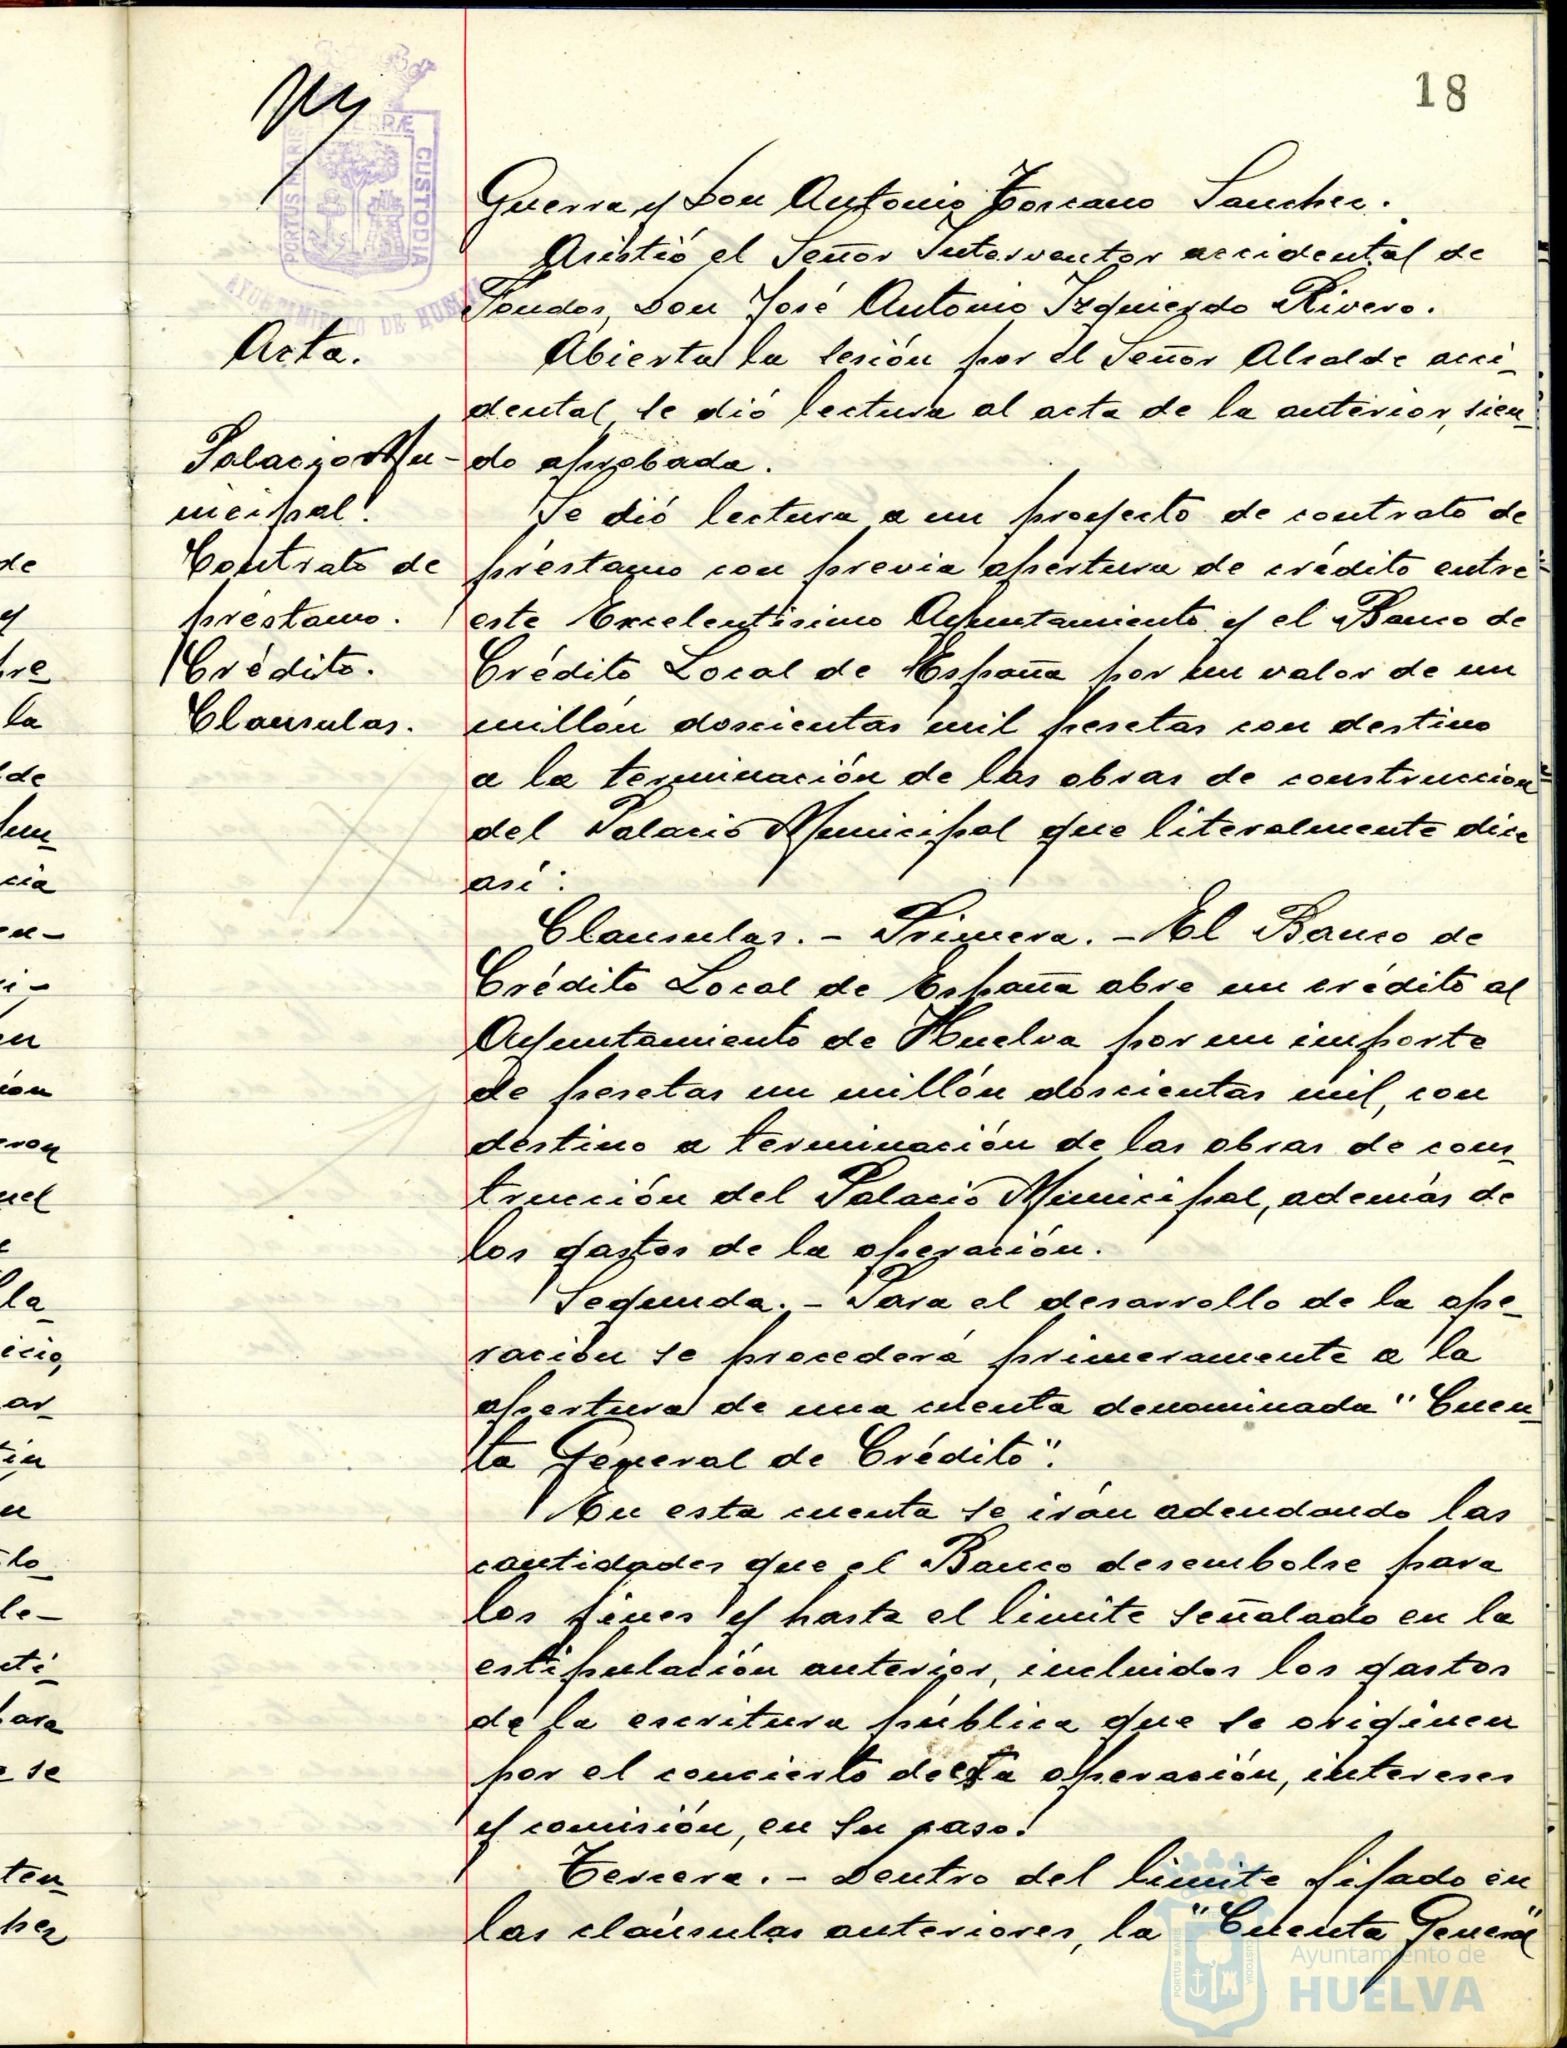 18
PORTUS MARIS
TERRÆ
CUSTODIA
AYUNTAMIENTO DE HUELVA
Acta.
Palacio Mu-
nicipal.
Contrato de
préstamo.
Crédito.
Clausulas.
Guerra y Don Antonio Toscano Sanchez.
Asistió el Señor Interventor accidental de
Fondos, Don José Antonio Izquierdo Rivero.
Abierta la sesión por el Señor Alcalde acci-
dental, se dió lectura al acta de la anterior, sien-
do aprobada.
Se dió lectura a un proyecto de contrato de
préstamo con previa apertura de crédito entre
este Excelentísimo Ayuntamiento y el Banco de
Crédito Local de España por un valor de un
millón doscientas mil pesetas con destino
a la terminación de las obras de construccion
del Palacio Municipal que literalmente dice
así:
Clausulas. - Primera. - El Banco de
Crédito Local de España abre un crédito al
Ayuntamiento de Huelva por un importe
de pesetas un millón doscientas mil, con
destino a terminación de las obras de cons-
trucción del Palacio Municipal, además de
los gastos de la operación.
Segunda. - Para el desarrollo de la ope-
ración se procederá primeramente a la
apertura de una cuenta denominada "Cuen-
ta General de Crédito".
En esta cuenta se irán adeudando las
cantidades que el Banco desembolse para
los fines y hasta el limite señalado en la
estipulación anterior, incluidos los gastos
de la escritura pública que se originen
por el concierto de esta operación, intereses
y comisión, en su caso.
Tercera. - Dentro del limite fijado en
las claúsulas anteriores, la "Cuenta General"
Ayuntamiento de
HUELVA